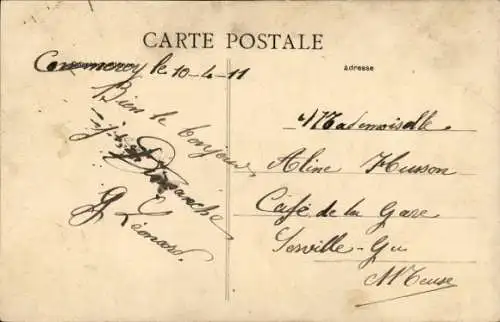 CARTE POSTALE
Commercy le 10-4-11
adresse
Bien le bonjour
Dimanche
G Léonard.
Mademoiselle
Aline Husson
Café de la Gare
Sorville-Gu
Meuse